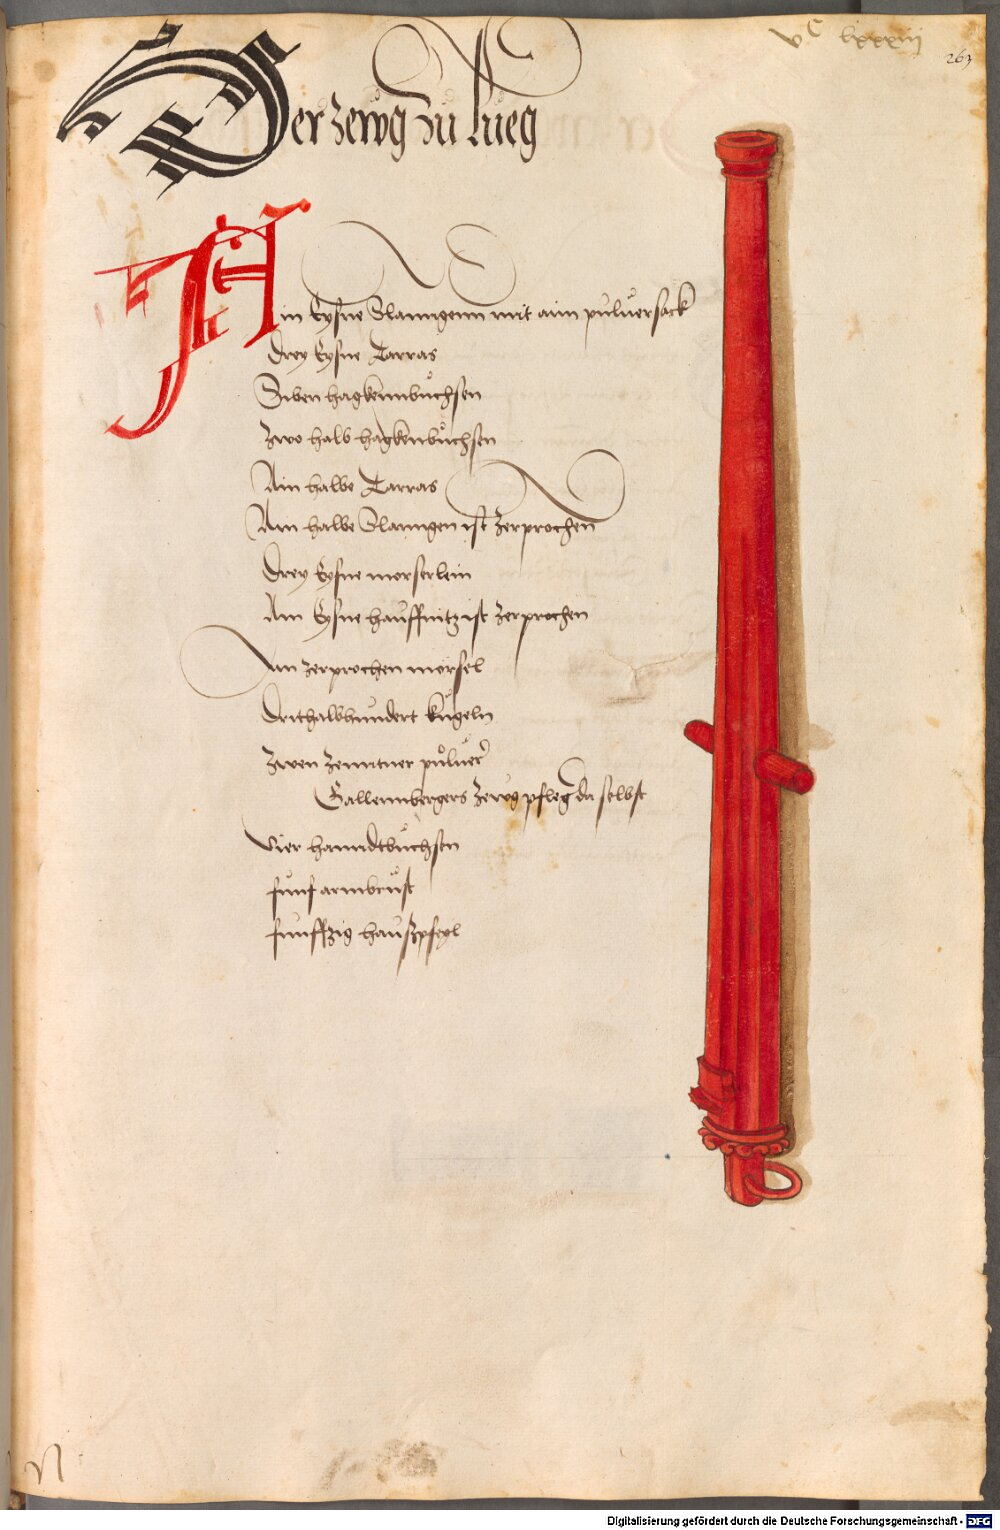 vᶜ lxxxiij
263
Der zewg zu Lueg
Ain Eysne Slanngenn mit aim puluersack
Drey Eysne Tarras
Siben hagkennbůchsen
Zwo halb hagkenbůchsen
Ain halbe Tarras
Ain halbe Slanngen ist zerprochen
Drey Eysne morserlein
Ain Eysne hauffnitz ist zerprochen
Ain zerprochen morsel
Drithalbhundert kugeln
Zwen zenntner puluer
Gallennbergers zewg pfleg da selbst
Vier hanndtbůchsen
funf armbrust
funffzig hauszpfeyl
Digitalisierung gefördert durch die Deutsche Forschungsgemeinschaft - DFG